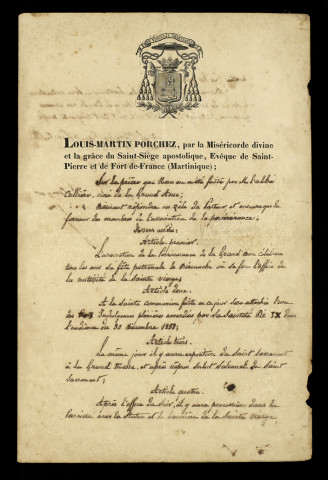 LOUIS-MARTIN PORCHEZ, par la Miséricorde divine
et la grâce du Saint-Siège apostolique, Evêque de Saint-
Pierre et de Fort-de-France (Martinique);
Sur la prière qui Nous en a été faite par M. l'abbé
curé de la Grand'Anse;
Désirant répondre au zèle du Pasteur et encourager la
ferveur des membres de l'association de la persévérance,
Avons arrêté:
Article premier.
L'association de la Persévérance de la Grand'Anse célèbrera
tous les ans sa fête patronale le Dimanche où se fera l'office de
la nativité de la Sainte Vierge.
Article deux.
A la sainte communion faite en ce jour sera attachée l'une
des Indulgences plénières accordées par sa Sainteté Pie IX dans
l'audience du 30 décembre 1853;
Article trois.
Le même jour il y aura exposition du saint sacrement
à la Grand'Messe, et après vêpres salut solennel du Saint
Sacrement;
Article quatre.
Après l'office du soir, il y aura procession dans la
avec la Statue et la bannière de la Sainte Vierge